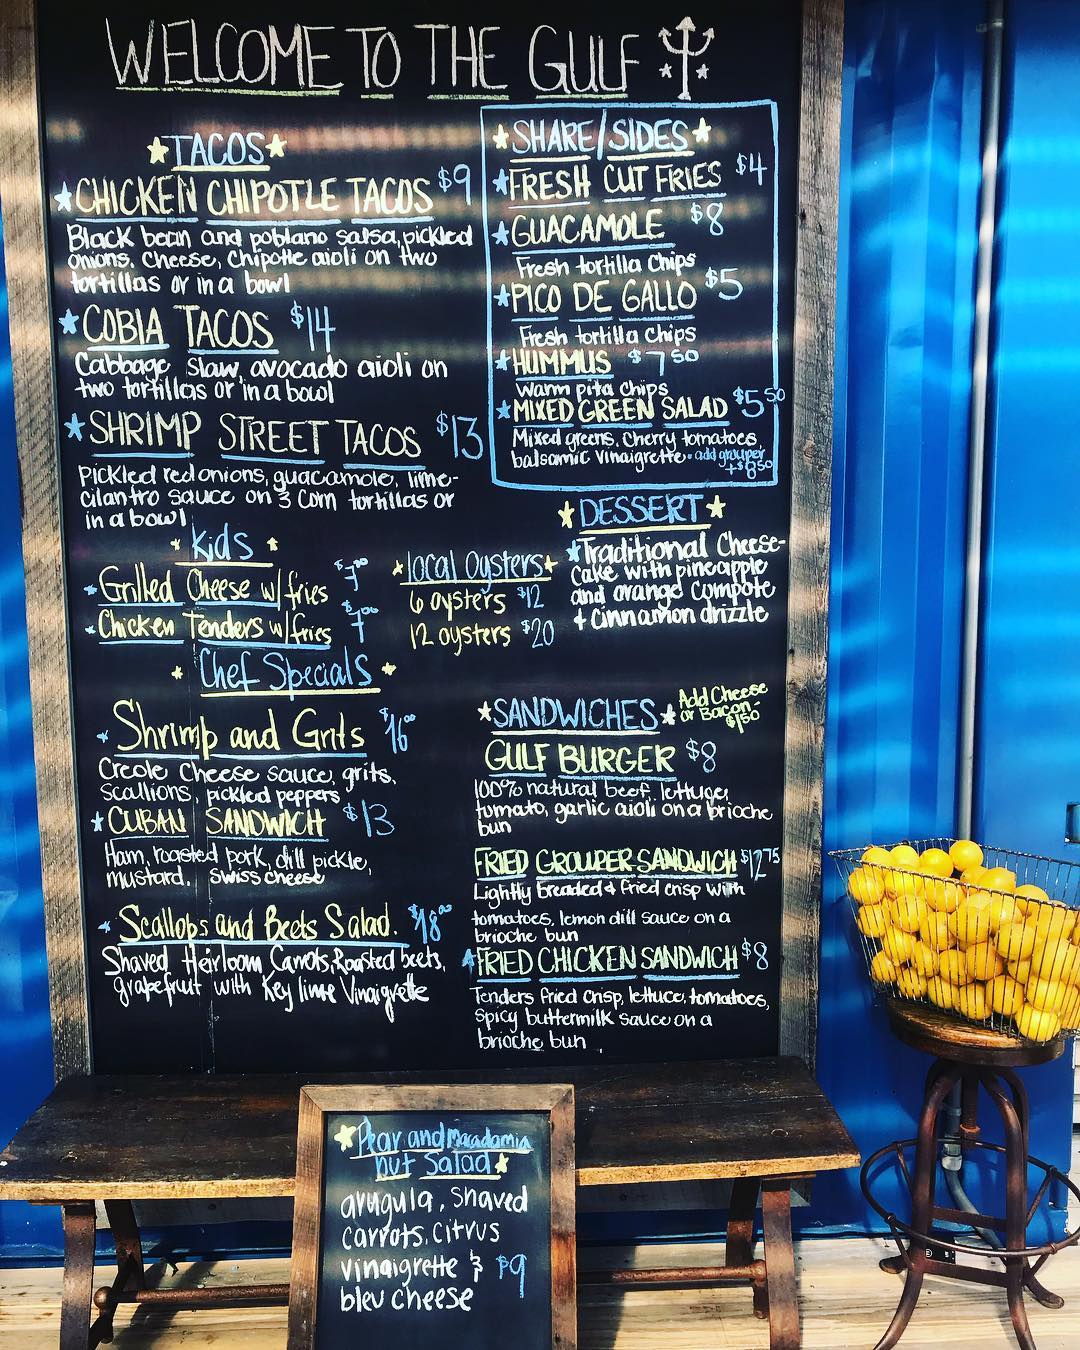 WELCOME TO THE GULF
TACOS
CHICKEN CHIPOTLE TACOS $9
Black bean and poblano salsa, pickled
onions, cheese, chipotle aioli on two
tortillas or in a bowl
COBIA TACOS $14
Cabbage slaw, avocado aioli on
two tortillas or in a bowl
SHRIMP STREET TACOS $13
Pickled red onions, guacamole, lime-
cilantro sauce on 3 corn tortillas or
in a bowl
Kids
Grilled Cheese w/ fries $7.00
Chicken Tenders w/ fries $7.00
Chef Specials
Shrimp and Grits $16.00
Creole cheese sauce, grits,
scallions, pickled peppers
CUBAN SANDWICH $13
Ham, roasted pork, dill pickle,
mustard, swiss cheese
Scallops and Beets Salad. $18.00
Shaved Heirloom Carrots, Roasted beets,
grapefruit with Key lime Vinaigrette
SHARE/SIDES
FRESH CUT FRIES $4
GUACAMOLE $8
Fresh tortilla chips
PICO DE GALLO $5
Fresh tortilla chips
HUMMUS $7 50
warm pita chips
MIXED GREEN SALAD $5 50
Mixed greens, cherry tomatoes,
balsamic vinaigrette - add grouper
+$8 50
DESSERT
Traditional Cheese-
cake with pineapple
and orange compote
+ cinnamon drizzle
local oysters
6 oysters $12
12 oysters $20
SANDWICHES
Add Cheese
or Bacon-
$1 50
GULF BURGER $8
100% natural beef, lettuce,
tomato, garlic aioli on a brioche
bun
FRIED GROUPER SANDWICH $12 75
Lightly breaded & fried crisp with
tomatoes, lemon dill sauce on a
brioche bun
FRIED CHICKEN SANDWICH $8
Tenders fried crisp, lettuce, tomatoes,
spicy buttermilk sauce on a
brioche bun
Pear and Macadamia
nut Salad
arugula, shaved
carrots, citrus
vinaigrette & $9
bleu cheese